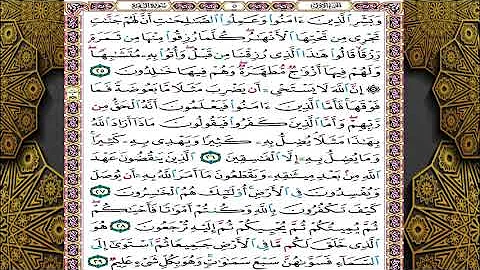 الجزء الأول ٥ سورة البقرة
وَبَشِّرِ ٱلَّذِينَ ءَامَنُوا۟ وَعَمِلُوا۟ ٱلصَّٰلِحَٰتِ أَنَّ لَهُمْ جَنَّٰتٍ
تَجْرِى مِن تَحْتِهَا ٱلْأَنْهَٰرُ كُلَّمَا رُزِقُوا۟ مِنْهَا مِن ثَمَرَةٍ
رِّزْقًا قَالُوا۟ هَٰذَا ٱلَّذِى رُزِقْنَا مِن قَبْلُ وَأُتُوا۟ بِهِۦ مُتَشَٰبِهًا
وَلَهُمْ فِيهَآ أَزْوَٰجٌ مُّطَهَّرَةٌ وَهُمْ فِيهَا خَٰلِدُونَ ٢٥
۞ إِنَّ ٱللَّهَ لَا يَسْتَحْىِۦٓ أَن يَضْرِبَ مَثَلًا مَّا بَعُوضَةً فَمَا
فَوْقَهَا فَأَمَّا ٱلَّذِينَ ءَامَنُوا۟ فَيَعْلَمُونَ أَنَّهُ ٱلْحَقُّ مِن
رَّبِّهِمْ وَأَمَّا ٱلَّذِينَ كَفَرُوا۟ فَيَقُولُونَ مَاذَآ أَرَادَ ٱللَّهُ
بِهَٰذَا مَثَلًا يُضِلُّ بِهِۦ كَثِيرًا وَيَهْدِى بِهِۦ كَثِيرًا
وَمَا يُضِلُّ بِهِۦٓ إِلَّا ٱلْفَٰسِقِينَ ٢٦ ٱلَّذِينَ يَنقُضُونَ عَهْدَ
ٱللَّهِ مِنۢ بَعْدِ مِيثَٰقِهِۦ وَيَقْطَعُونَ مَآ أَمَرَ ٱللَّهُ بِهِۦٓ أَن يُوصَلَ
وَيُفْسِدُونَ فِى ٱلْأَرْضِ أُو۟لَٰٓئِكَ هُمُ ٱلْخَٰسِرُونَ ٢٧
كَيْفَ تَكْفُرُونَ بِٱللَّهِ وَكُنتُمْ أَمْوَٰتًا فَأَحْيَٰكُمْ
ثُمَّ يُمِيتُكُمْ ثُمَّ يُحْيِيكُمْ ثُمَّ إِلَيْهِ تُرْجَعُونَ ٢٨ هُوَ
ٱلَّذِى خَلَقَ لَكُم مَّا فِى ٱلْأَرْضِ جَمِيعًا ثُمَّ ٱسْتَوَىٰٓ إِلَى
ٱلسَّمَآءِ فَسَوَّىٰهُنَّ سَبْعَ سَمَٰوَٰتٍ وَهُوَ بِكُلِّ شَىْءٍ عَلِيمٌ ٢٩